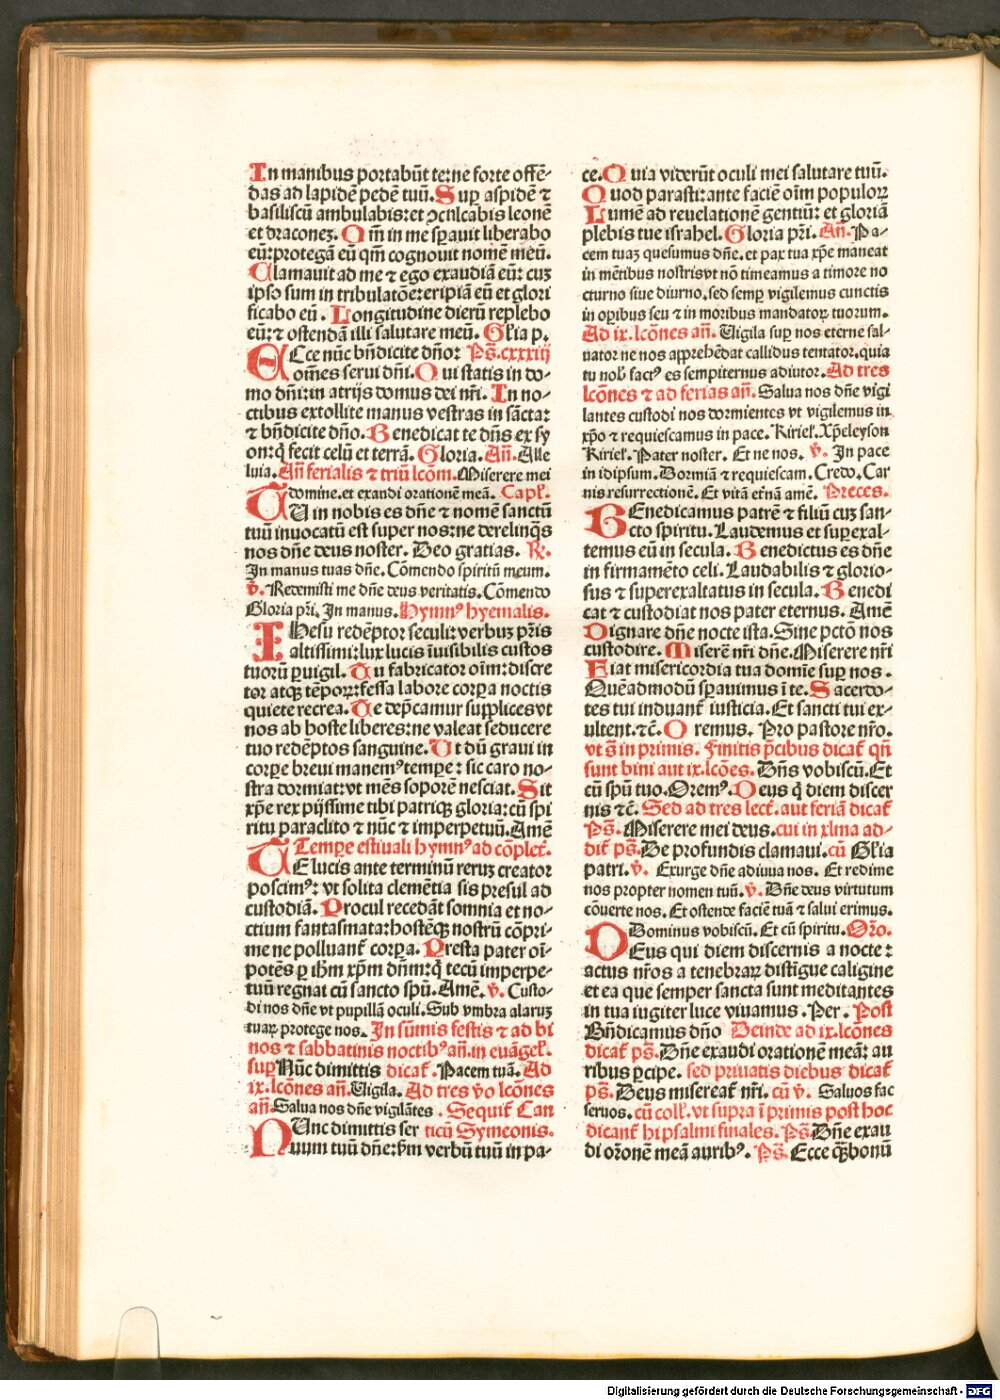 In manibus portabūt te: ne forte offē-
das ad lapidē pedē tuū. Suꝑ aspidē ⁊
basiliscū ambulabis: et ꝯculcabis leonē
et draconeꝫ. Qm̄ in me sꝑauit liberabo
eū: protegā eū qm̄ cognouit nomē meū.
Clamauit ad me ⁊ ego exaudiā eū: cuꝫ
ipso sum in tribulatōe: eripiā eū et glori
ficabo eū. Longitudine dierū replebo
eū: ⁊ ostendā illi salutare meū. Gl̄ia p.
Ecce nūc bn̄dicite dn̄o: Ps̄. cxxxiij
om̄es serui dn̄i. Qui statis in do-
mo dn̄i: in atrijs domus dei nr̄i. In no-
ctibus extollite manus vestras in sācta:
⁊ bn̄dicite dn̄o. Benedicat te dn̄s ex sy
on: q̇ fecit celū et terrā. Gloria. An̄. Alle
luia. An̄ ferialis ⁊ triū lcōm. Miserere mei
domine. et exaudi orationē meā. Capl̄.
TU in nobis es dn̄e ⁊ nomē sanctū
tuū inuocatū est super nos: ne derelinq̄s
nos dn̄e deus noster. Deo gratias. R̄.
In manus tuas dn̄e. Cōmendo spiritū meum.
v̄. Redemisti me dn̄e deus veritatis. Cōmendo
Gloria pr̄i. In manus. Hymnꝰ hyemalis.
IHesu redēptor seculi: verbuꝫ pr̄is
altissimi: lux lucis īuisibilis custos
tuorū ꝑuigil. Tu fabricator oīm: discre
tor atqꝫ tēporꝝ: fessa labore corꝑa noctis
quiete recrea. Te dep̄camur supplices vt
nos ab hoste liberes: ne valeat seducere
tuo redēptos sanguine. Ut dū graui in
corꝑe breui manemꝰ tempe: sic caro no-
stra dormiat: vt mēs soporē nesciat. Sit
xp̄e rex pijssime tibi patriqꝫ gloria: cū spi
ritu paraclito ⁊ nūc ⁊ imperpetuū. Amē
Tempe estiuali hymnꝰ ad cōplet̄.
TE lucis ante terminū reruꝫ creator
poscimꝰ: vt solita clemētia sis presul ad
custodiā. Procul recedāt somnia et no-
ctium fantasmata: hostēqꝫ nostrū cōpri-
me ne polluant̄ corꝑa. Presta pater oī-
potēs ꝑ ih̄m xp̄m dn̄m: q̇ tecū imperpe-
tuū regnat cū sancto spū. Amē. v̄. Custo-
di nos dn̄e vt pupillā oculi. Sub vmbra alaruꝫ
tuaꝝ protege nos. In sūmis festis ⁊ ad bi
nos ⁊ sabbatinis noctibꝰ an̄. in euāgel̄.
suꝑ Nūc dimittis dicat̄. Pacem tuā. Ad
ix. lcōnes an̄. Uigila. Ad tres v̄o lcōnes
an̄. Salua nos dn̄e vigilātes. Sequit̄ Can
NUnc dimittis ser ticū Symeonis.
uum tuū dn̄e: ẜm verbū tuū in pa-
ce. Quia viderūt oculi mei salutare tuū.
Quod parasti: ante faciē oīm populoꝝ
Lumē ad reuelationē gentiū: et gloriā
plebis tue israhel. Gloria pr̄i. An̄. Pa-
cem tuaꝫ quesumus dn̄e. et pax tua xp̄e maneat
in mētibus nostris vt nō timeamus a timore no
cturno siue diurno. sed semꝑ vigilemus cunctis
in oꝑibus seu ⁊ in moribus mandatoꝝ tuorum.
Ad ix. lcōnes an̄. Uigila suꝑ nos eterne sal-
uator ne nos apprehēdat callidus tentator. quia
tu nob̄ factꝰ es sempiternus adiutor. Ad tres
lcōnes ⁊ ad ferias an̄. Salua nos dn̄e vigi
lantes custodi nos dormientes vt vigilemus in
xp̄o ⁊ requiescamus in pace. Kiriel̄. Xp̄eleyson
Kiriel̄. Pater noster. Et ne nos. v̄. In pace
in idipsum. Dormiā ⁊ requiescam. Credo. Car
nis resurrectionē. Et vitā et̄nā amē. Preces.
BEnedicamus patrē ⁊ filiū cuꝫ san-
cto spiritu. Laudemus et suꝑexal-
temus eū in secula. Benedictus es dn̄e
in firmamēto celi. Laudabilis ⁊ glorio-
sus ⁊ superexaltatus in secula. Benedi
cat ⁊ custodiat nos pater eternus. Amē
Dignare dn̄e nocte ista. Sine pctō nos
custodire. Miserē nr̄i dn̄e. Miserere nr̄i
Fiat misericordia tua domīe suꝑ nos.
Quēadmodū sꝑauimus ī te. Sacerdo-
tes tui induant̄ iusticia. Et sancti tui ex-
ultent. ⁊c̄. Oremus. Pro pastore nr̄o.
vt s̄ in primis. Finitis p̄cibus dicat̄ qn̄
sunt bini aut ix. lcōes. Dn̄s vobiscū. Et
cū spū tuo. Oremꝰ. Deus q̇ diem discer
nis ⁊c̄. Sed ad tres lect̄. aut feriā dicat̄
Ps̄. Miserere mei deus. cui in xlma ad-
dit̄ ps̄. De profundis clamaui. cū Gl̄ia
patri. v̄. Exurge dn̄e adiuua nos. Et redime
nos propter nomen tuū. v̄. Dn̄e deus virtutum
cōuerte nos. Et ostende faciē tuā ⁊ salui erimus.
Dominus vobiscū. Et cū spiritu. Orō.
DEus qui diem discernis a nocte:
actus nr̄os a tenebraꝝ distīgue caligine
et ea que semper sancta sunt meditantes
in tua iugiter luce viuamus. Per. Post
Bn̄dicamus dn̄o Deinde ad ix. lcōnes
dicat̄ ps̄. Dn̄e exaudi orationē meā: au
ribus ꝑcipe. sed priuatis diebus dicat̄
ps̄. Deus misereat̄ nr̄i. cū v̄. Saluos fac
seruos. cū coll̄. vt supra ī primis post hoc
dicant̄ hi psalmi finales. Ps̄. Dn̄e exau
di oronē meā auribꝰ. Ps̄. Ecce q̄ꝫ bonū
Digitalisierung gefördert durch die Deutsche Forschungsgemeinschaft - DFG